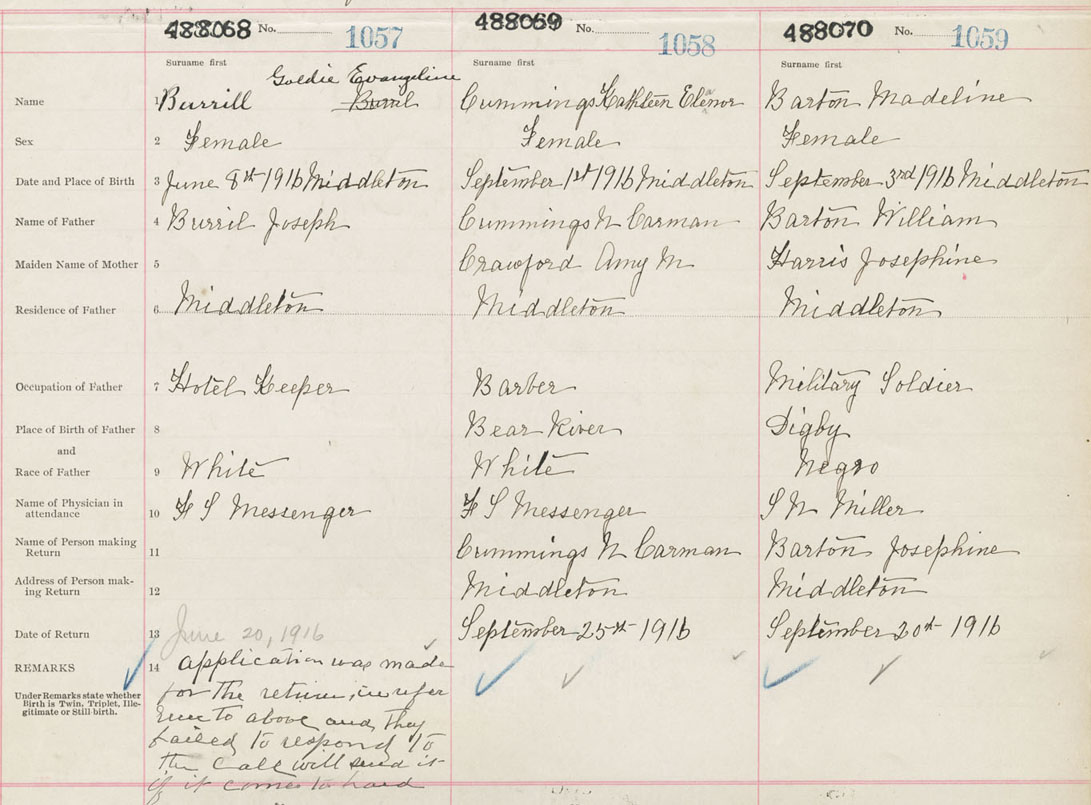 488068 No. 1057 488069 No. 1058 488070 No. 1059
Surname first Surname first Surname first
Goldie Evangeline
Name 1 Burrill Burril Cummings Kathleen Elenor Barton Madeline
Sex 2 Female Female Female
Date and Place of Birth 3 June 8th 1916 Middleton September 1st 1916 Middleton September 3rd 1916 Middleton
Name of Father 4 Burril Joseph Cummings N Carman Barton William
Maiden Name of Mother 5 Crawford Amy M Harris Josephine
Residence of Father 6 Middleton Middleton Middleton
Occupation of Father 7 Hotel Keeper Barber Military Soldier
Place of Birth of Father 8 Bear River Digby
and
Race of Father 9 White White Negro
Name of Physician in
attendance 10 F S Messenger F S Messenger S N Miller
Name of Person making
Return 11 Cummings N Carman Barton Josephine
Address of Person mak-
ing Return 12 Middleton Middleton
Date of Return 13 June 20, 1916 September 25th 1916 September 20th 1916
REMARKS 14 application was made
Under Remarks state whether
Birth is Twin, Triplet, Ille-
gitimate or Still-birth.
for the return, in refer
ence to above and they
failed to respond to
the call will send it
if it comes to hand